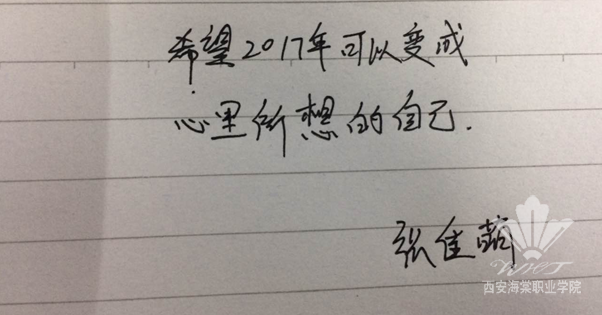 希望2017年可以变成
心里所想的自己.
张佳茹
WHCT
西安海棠职业学院